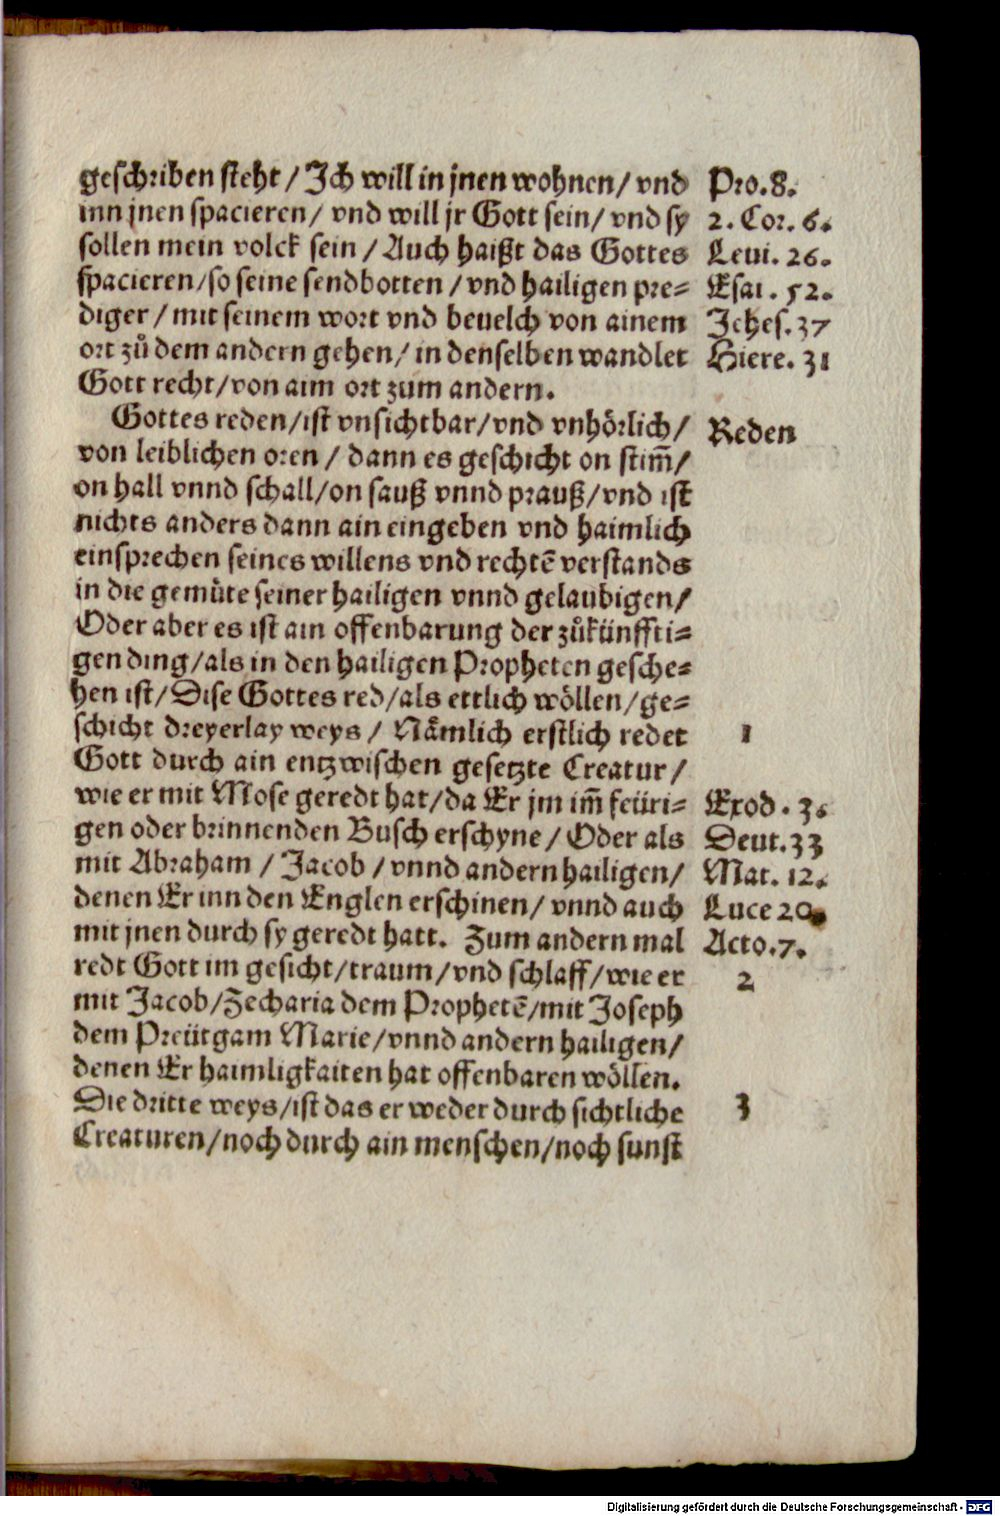 geschriben steht / Ich will in jnen wohnen / vnd
inn jnen spacieren / vnd will jr Gott sein / vnd sy
sollen mein volck sein / Auch haißt das Gottes
spacieren / so seine sendbotten / vnd hailigen pre=
diger / mit seinem wort vnd beuelch von ainem
ort zů dem andern gehen / in denselben wandlet
Gott recht / von aim ort zum andern.
Pro. 8.
2. Cor. 6.
Leui. 26.
Esai. 52.
Jehes. 37
Hiere. 31
Gottes reden / ist vnsichtbar / vnd vnhörlich /
von leiblichen oren / dann es geschicht on stim̄ /
on hall vnnd schall / on sauß vnnd prauß / vnd ist
nichts anders dann ain eingeben vnd haimlich
einsprechen seines willens vnd rechtē verstands
in die gemüte seiner hailigen vnnd gelaubigen /
Oder aber es ist ain offenbarung der zůkünffti=
gen ding / als in den hailigen Propheten gesche=
hen ist / Dise Gottes red / als ettlich wöllen / ge=
schicht dreyerlay weys / Nämlich erstlich redet
Gott durch ain entzwischen gesetzte Creatur /
wie er mit Mose geredt hat / da Er jm im̄ feüri=
gen oder brinnenden Busch erschyne / Oder als
mit Abraham / Jacob / vnnd andern hailigen /
denen Er inn den Englen erschinen / vnnd auch
mit jnen durch sy geredt hatt. Zum andern mal
redt Gott im gesicht / traum / vnd schlaff / wie er
mit Jacob / Zecharia dem Prophetē / mit Joseph
dem Preütgam Marie / vnnd andern hailigen /
denen Er haimligkaiten hat offenbaren wöllen.
Die dritte weys / ist das er weder durch sichtliche
Creaturen / noch durch ain menschen / noch sunst
Reden
1
Exod. 3.
Deut. 33
Mat. 12.
Luce 20.
Acto. 7.
2
3
Digitalisierung gefördert durch die Deutsche Forschungsgemeinschaft - DFG